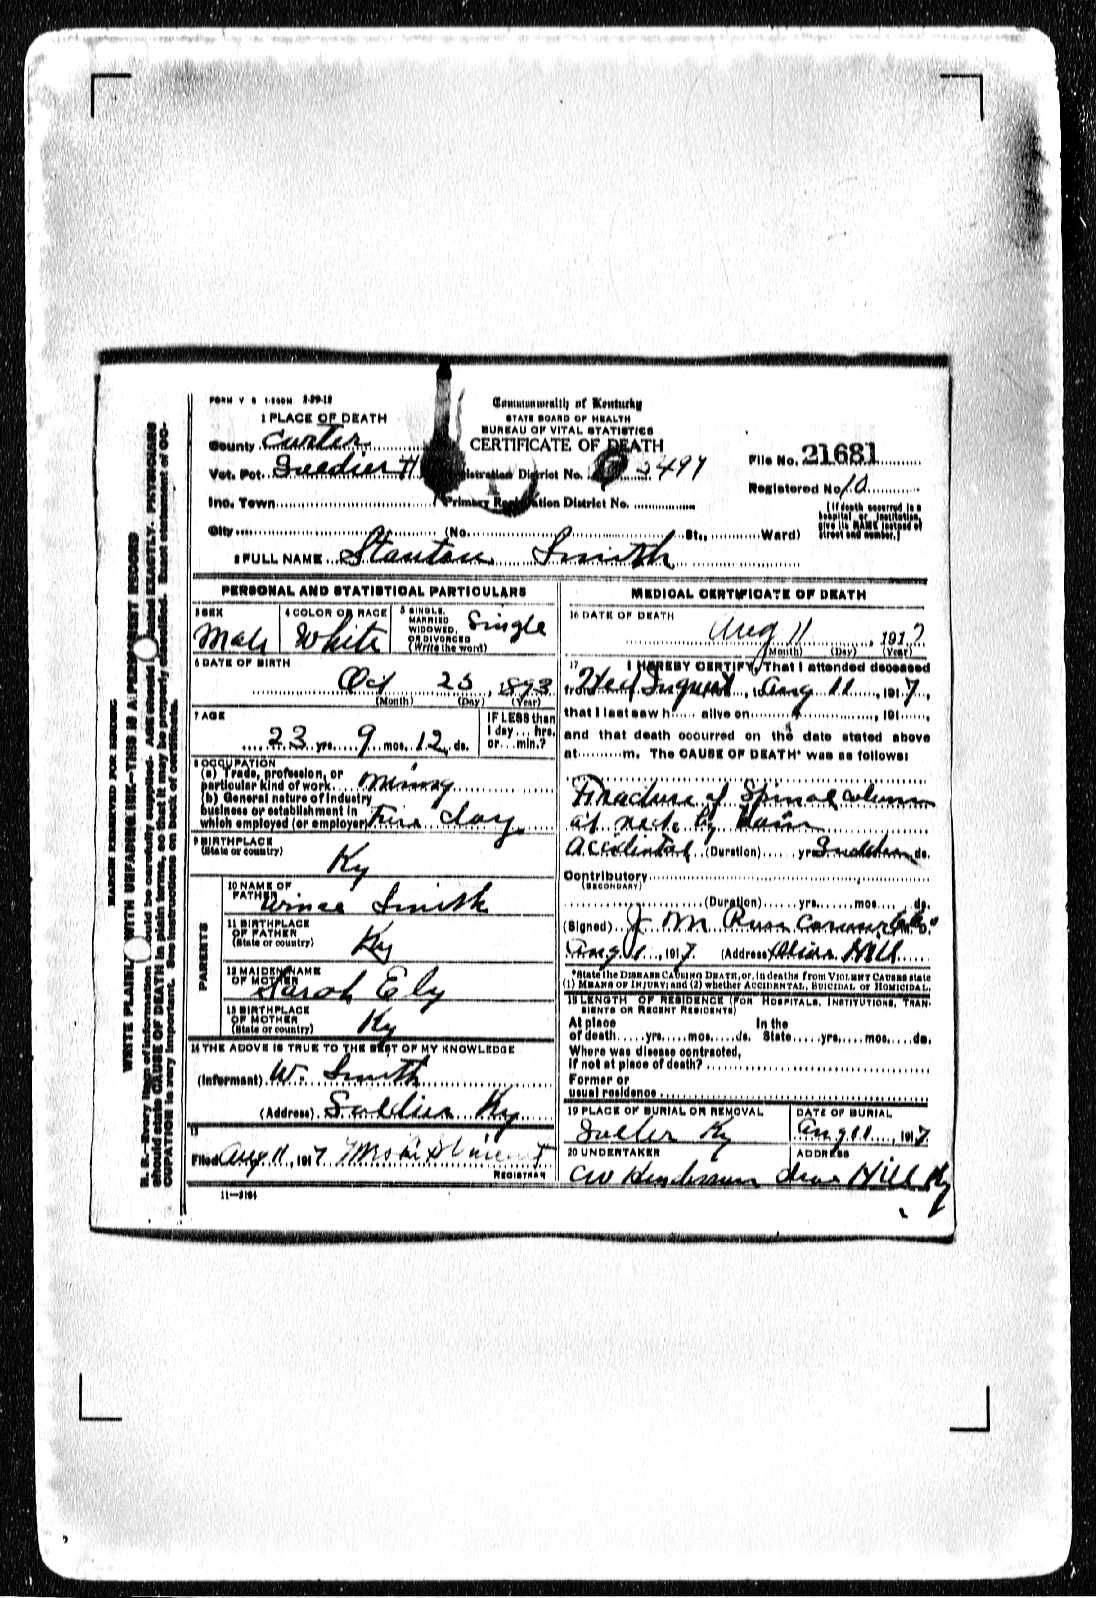 FORM V S 1-500M 3-29-13
Commonwealth of Kentucky
STATE BOARD OF HEALTH
BUREAU OF VITAL STATISTICS
CERTIFICATE OF DEATH
1 PLACE OF DEATH
County Carter
Vot. Pct. Soldier
Registration District No. 5497
File No. 21681
Inc. Town
Primary Registration District No.
Registered No 10
City (No. St., Ward)
(If death occurred in a
hospital or institution,
give its NAME instead of
street and number.)
2 FULL NAME Stanton Smith
PERSONAL AND STATISTICAL PARTICULARS
3 SEX
Male
4 COLOR OR RACE
White
5 SINGLE,
MARRIED
WIDOWED,
OR DIVORCED
(Write the word)
Single
6 DATE OF BIRTH
Oct 25, 1893
(Month) (Day) (Year)
7 AGE
23 yrs. 9 mos. 12 ds.
IF LESS than
1 day ... hrs.
or ... min.?
8 OCCUPATION
(a) Trade, profession, or
particular kind of work Mining
(b) General nature of industry
business or establishment in
which employed (or employer) Fire clay
9 BIRTHPLACE
(State or country)
Ky
PARENTS
10 NAME OF
FATHER Smith
11 BIRTHPLACE
OF FATHER
(State or country)
Ky
12 MAIDEN NAME
OF MOTHER
Sarah Ely
13 BIRTHPLACE
OF MOTHER
(State or country)
Ky
14 THE ABOVE IS TRUE TO THE BEST OF MY KNOWLEDGE
(Informant) W. Smith
(Address) Soldier Ky
15
Filed Aug 11, 1917
REGISTRAR
11—3184
MEDICAL CERTIFICATE OF DEATH
16 DATE OF DEATH
Aug 11, 1917
(Month) (Day) (Year)
17 I HEREBY CERTIFY, That I attended deceased
from Held Inquest, to Aug 11, 1917,
that I last saw h alive on , 191 ,
and that death occurred on the date stated above
at m. The CAUSE OF DEATH* was as follows:
Fracture of Spinal column
at neck by
Accidental (Duration) yrs Sudden ds.
Contributory
(SECONDARY)
(Duration) yrs. mos. ds.
(Signed) J M Rose
Aug 1, 1917 (Address) Olive Hill
*State the DISEASE CAUSING DEATH, or, in deaths from VIOLENT CAUSES state
(1) MEANS OF INJURY; and (2) whether ACCIDENTAL, SUICIDAL or HOMICIDAL.
18 LENGTH OF RESIDENCE (FOR HOSPITALS, INSTITUTIONS, TRAN-
SIENTS OR RECENT RESIDENTS)
At place In the
of death yrs. mos. ds. State yrs. mos. ds.
Where was disease contracted,
if not at place of death?
Former or
usual residence
19 PLACE OF BURIAL OR REMOVAL
Ky
DATE OF BURIAL
Aug 11, 1917
20 UNDERTAKER
CW Henderson
ADDRESS
Olive Hill Ky
MARGIN RESERVED FOR BINDING
WRITE PLAINLY WITH UNFADING INK—THIS IS A PERMANENT RECORD
N. B.—Every item of information should be carefully supplied. AGE should be stated EXACTLY. PHYSICIANS
should state CAUSE OF DEATH in plain terms, so that it may be properly classified. Exact statement of OC-
CUPATION is very important. See instructions on back of certificate.